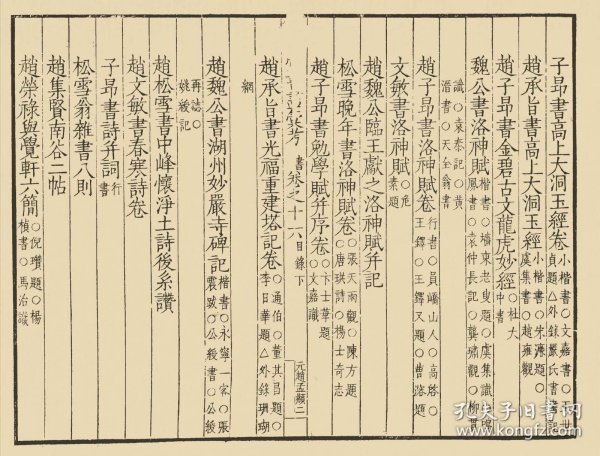 子昂書高上大洞玉經卷 小楷書○文嘉書○王世貞題△外錄嚴氏書畫記
趙承旨書高上大洞玉經 小楷書○宋濂題○虞集書○趙雍觀
趙子昂書金碧古文龍虎妙經 ○杜大中書
魏公書洛神賦 楷書○墻東老叟題○虞集識
鳳書○袁仲長記○龔璛觀○柳貫
識○袁泰記○黃潛書○天全翁書
趙子昂書洛神賦卷 行書○員嶠山人○高啓○王鐸○王鐸又題○曹溶題
文敏書洛神賦 ○危素題
趙魏公臨王獻之洛神賦并記
松雪晚年書洛神賦卷 ○張天雨觀○陳方題○唐珙詩○楊士奇志
趙子昂書勉學賦并序卷 ○卞士華題○文嘉識
書卷之十六目錄下
元趙孟頫二
趙承旨書光福重建塔記卷 ○通伯○董其昌題○李日華題△外錄珊瑚網
趙魏公書湖州妙嚴寺碑記 楷書○永寧一家○張震跋○公綬書○公綬再誌○姚綬記
趙松雪書中峰懷淨土詩後系讚
趙文敏書春寒詩卷
子昂書詩并詞 行書
松雪翁雜書八則
趙集賢南谷二帖
趙榮祿與覺軒六簡 ○倪瓚題○楊楨書○馬治識
孔夫子旧书网
www.kongfz.com